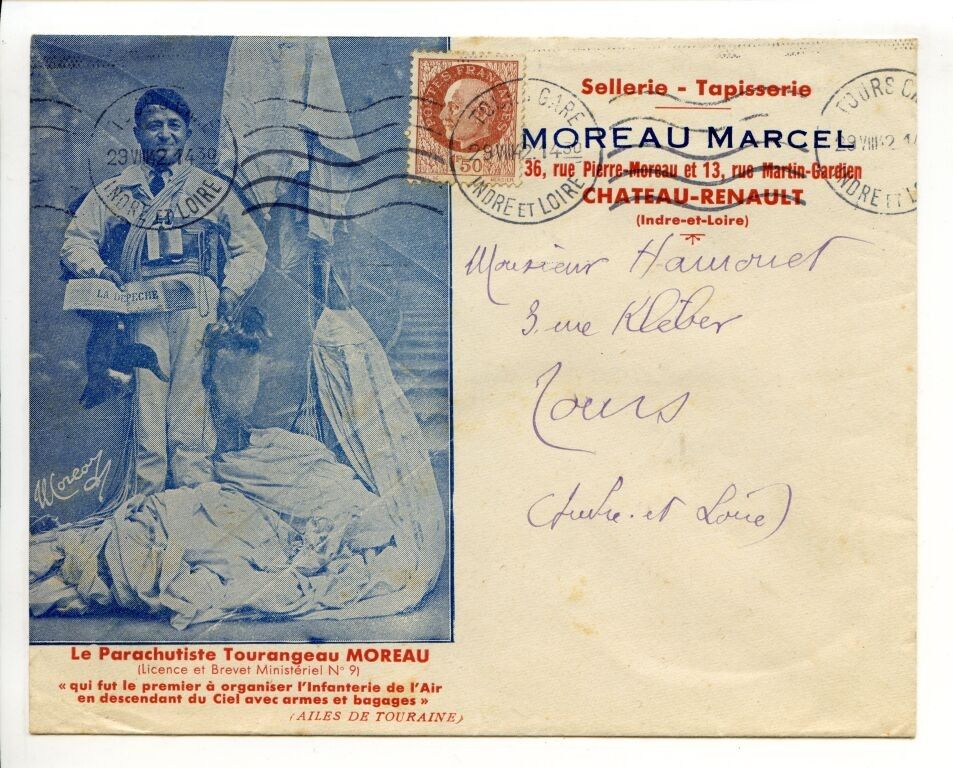 POSTES FRANÇAISES
1F50
MERCIER
TOURS GARE
29 VIII 42 14 30
INDRE ET LOIRE
29 VIII 42 14 30
INDRE ET LOIRE
TOURS
29 VIII 42 14
INDRE ET LO
Sellerie - Tapisserie
MOREAU MARCEL
36, rue Pierre-Moreau et 13, rue Martin-Gardien
CHATEAU-RENAULT
(Indre-et-Loire)
Monsieur Hamonet
3 rue Kléber
Tours
(Indre-et Loire)
LA DEPECHE
Moreau
Le Parachutiste Tourangeau MOREAU
(Licence et Brevet Ministériel N° 9)
« qui fut le premier à organiser l'Infanterie de l'Air
en descendant du Ciel avec armes et bagages »
(AILES DE TOURAINE)